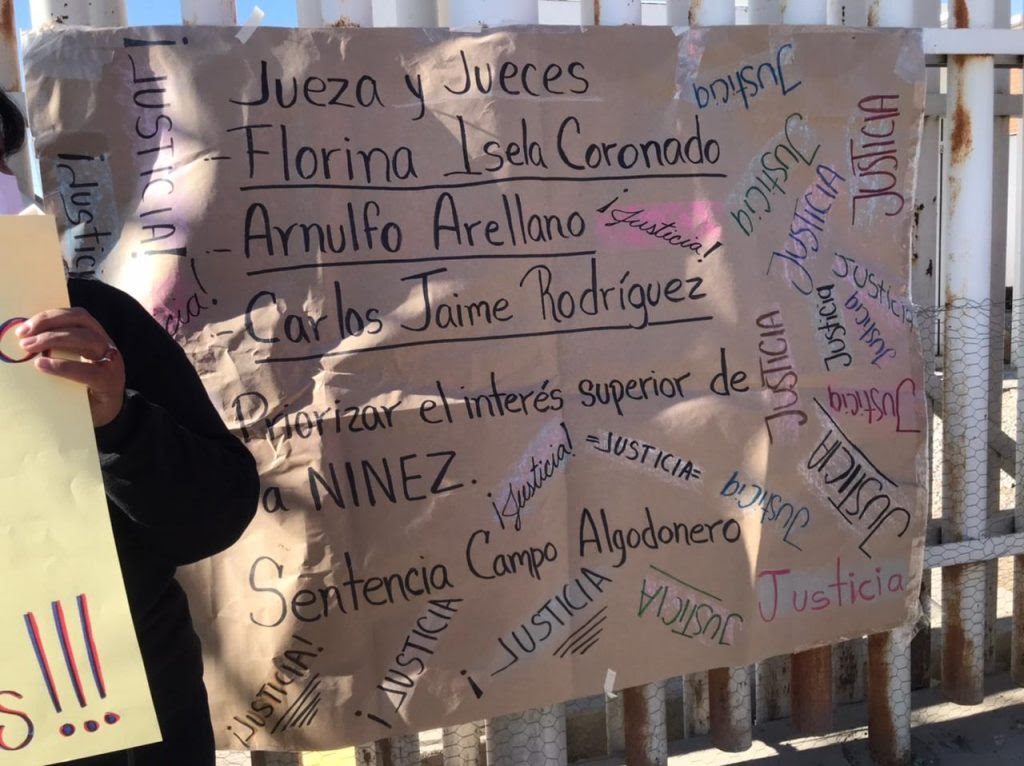 Jueza y Jueces
- Florina Isela Coronado
- Arnulfo Arellano
- Carlos Jaime Rodríguez
Priorizar el interés superior de
a NINEZ.
Sentencia Campo Algodonero
¡JUSTICIA!
¡Justic
icia!
¡Justicia!
Justicia
Justicia
JUSTICIA
JUSTICIA
JUSTICIA
Justicia
Justicia
JUSTICIA
Justicia
JUSTICIA
¡Justicia!
=JUSTICIA=
Justicia
¡JUSTICIA!
¡JUSTICIA
¡JUSTICIA
JUSTICIA
Justicia
s!!!